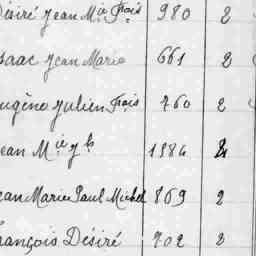 ésiré Jean M.ie Frois 980 2
saac Jean Marie 661 2
ugène Julien Frois 760 2
ean M.ie 1386 2
ean Marie Paul Michel 869 2
rançois Désiré 702 2